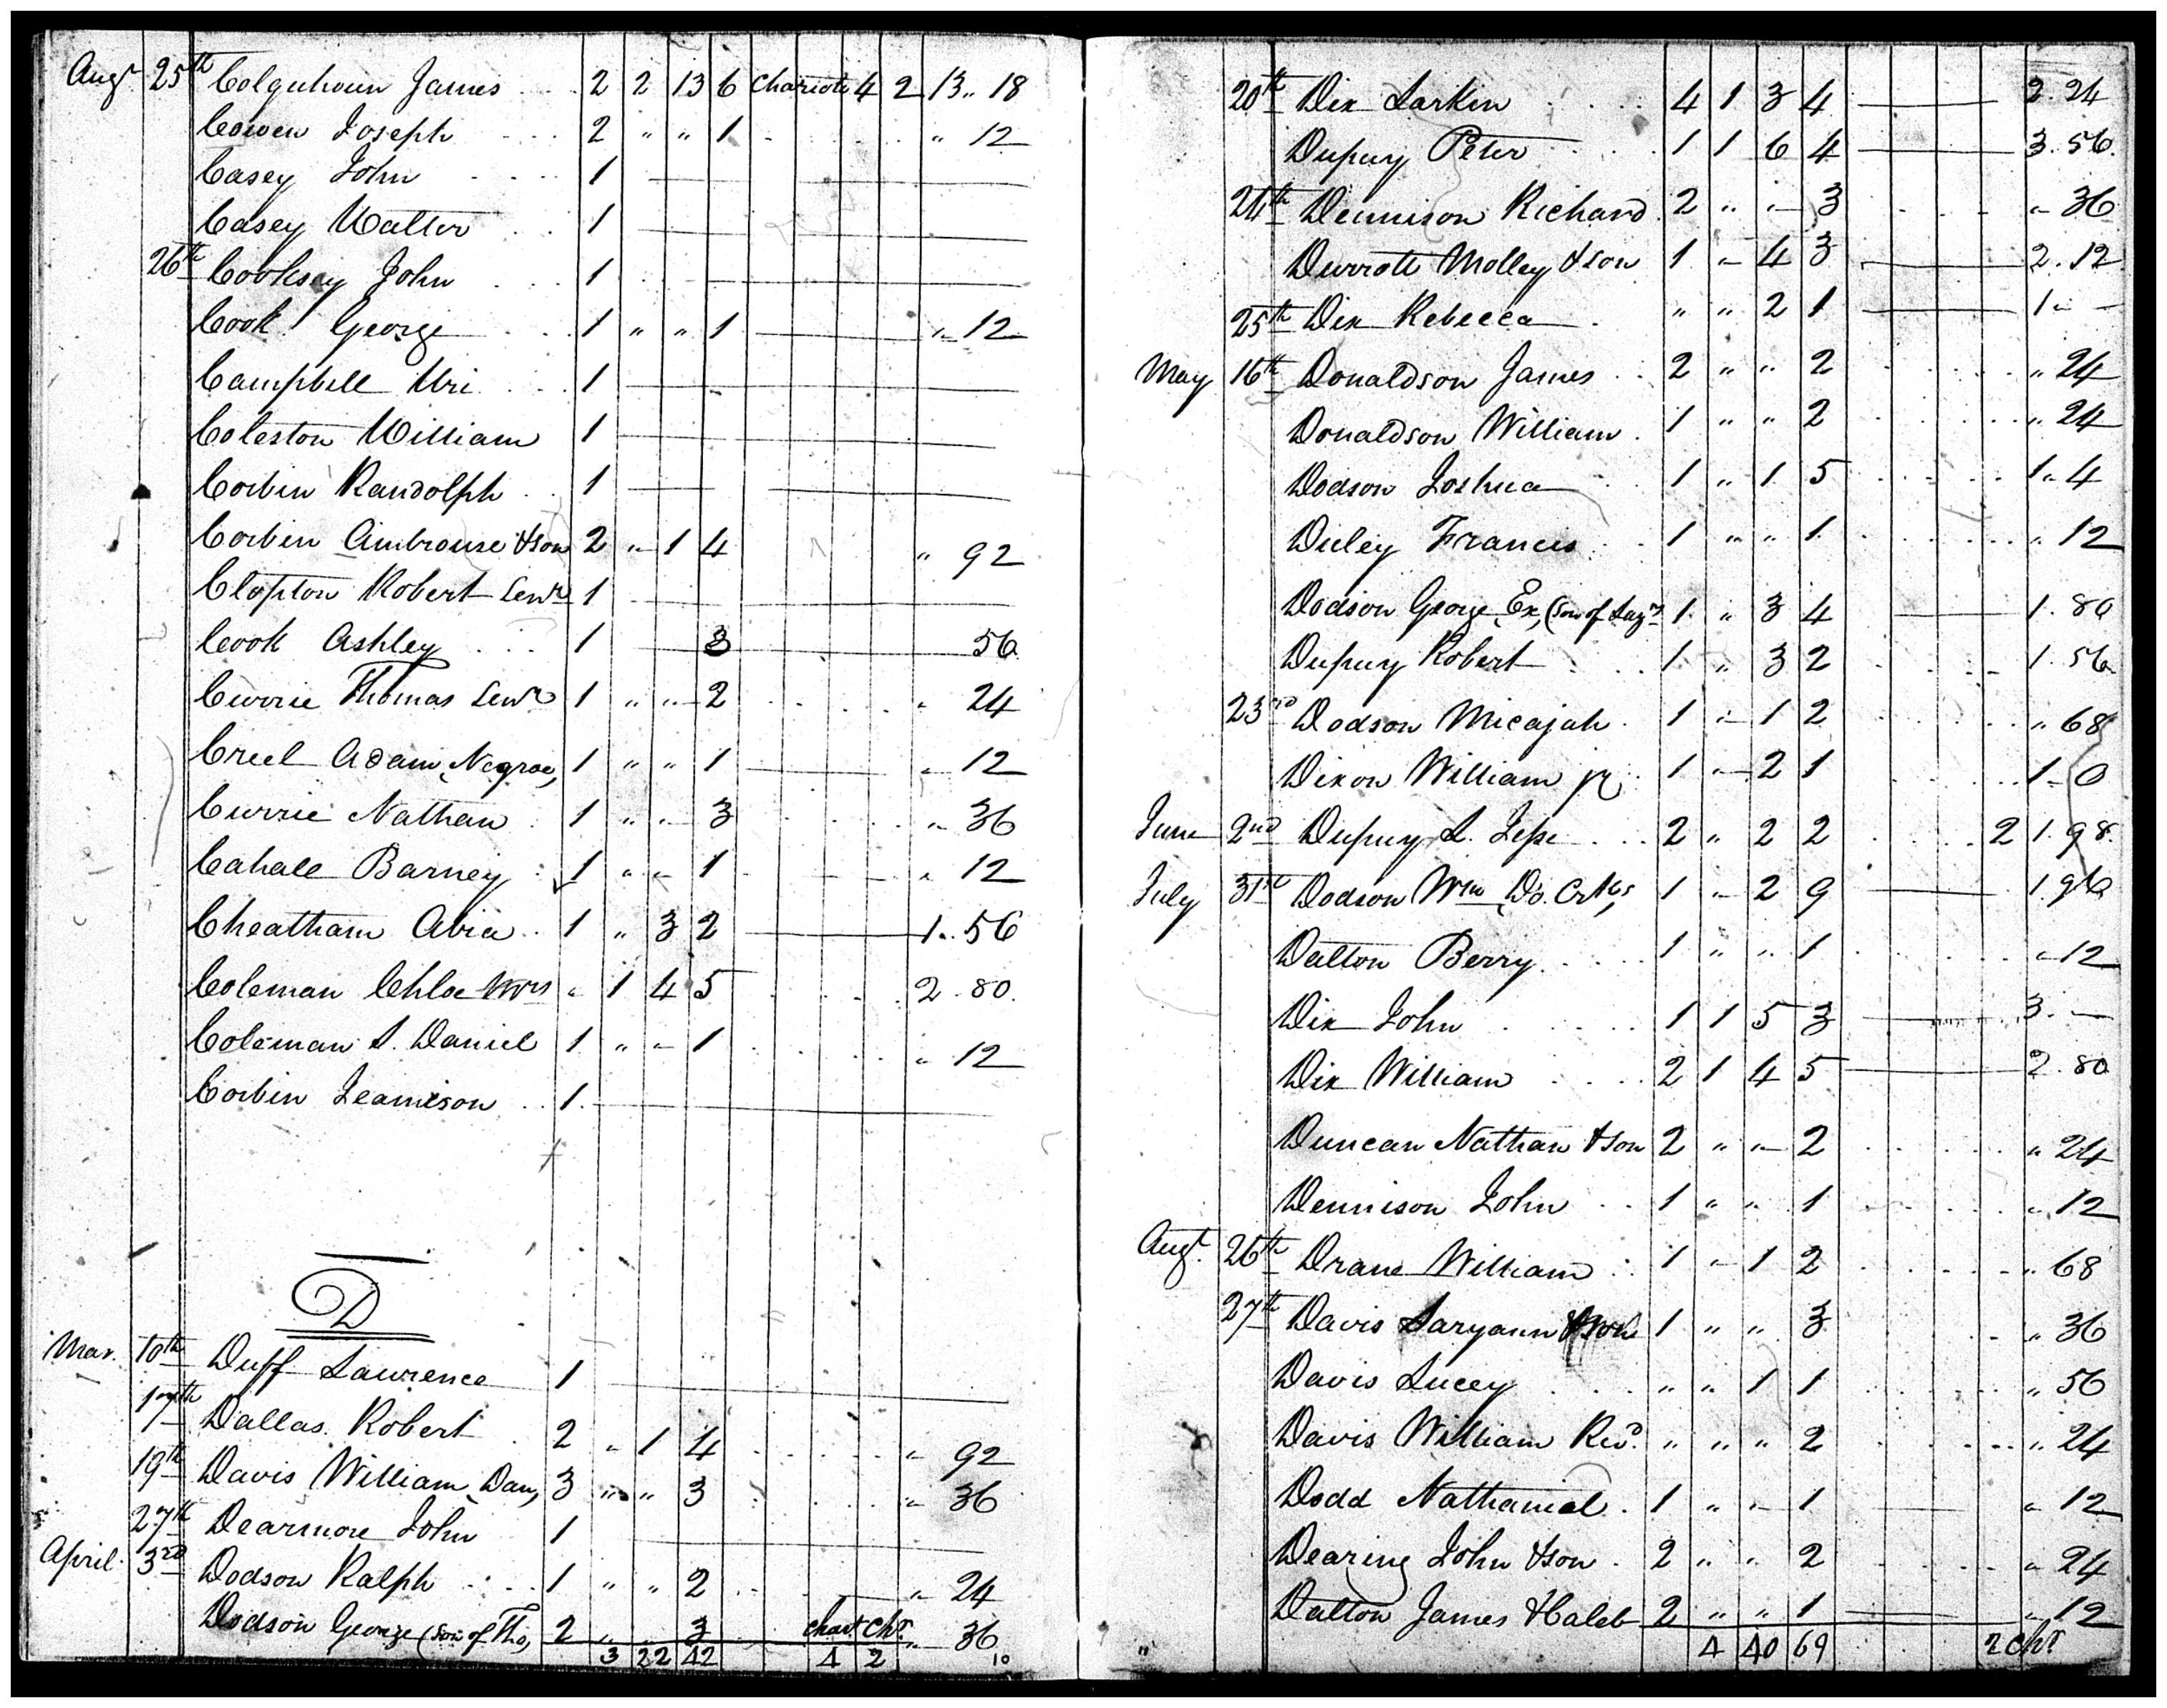 Augt 25th Colquhoun James 2 2 13 6 Chariott 4 2 13.. 18
Cowen Joseph 2 " " 1 " 12
Casey John 1
Casey Walter 1
26th Cooksey John 1
Cook George 1 " " 1 " 12
Campbell Uri 1
Coleston William 1
Corbin Randolph 1
Corbin Ambrouse &son 2 " 1 4 " 92
Clopton Robert Senr 1
Cook Ashley 1 3 56
Currie Thomas Senr 1 " " 2 " 24
Creel Adam, Negroe, 1 " " 1 " 12
Currie Nathan 1 " " 3 " 36
Cahall Barney 1 " " 1 " 12
Cheatham Abia 1 " 3 2 1.. 56
Coleman Chloe Mrs " 1 4 5 2 80
Coleman S. Daniel 1 " " 1 " 12
Corbin Jeamison 1
D
Mar. 10th Duff Lawrence 1
17th Dallas Robert 2 " 1 4 " 92
19th Davis William, Dan, 3 " " 3 " 36
27th Dearmore John 1
April 3rd Dodson Ralph 1 " " 2 " 24
Dodson George (son of Tho, 2 " 3 chart chr " 36
3 22 42 4 2 10
20th Dix Larkin 4 1 3 4 2. 24
Dupuy Peter 1 1 6 4 3. 56
24th Dennison Richard 2 " " 3 " 36
Durrott Molley &son 1 " 4 3 2. 12
25th Dix Rebecca " " 2 1 1 " —
May 16th Donaldson James 2 " " 2 " 24
Donaldson William 1 " " 2 " 24
Dodson Joshua 1 " 1 5 1 " 4
Duley Francis 1 " " 1 " 12
Dodson George, Ex, (son of Lazs 1 " 3 4 1. 80
Dupuy Robert 1 " 3 2 1. 56
23rd Dodson Micajah 1 " 1 2 " 68
Dixon William jr 1 " 2 1 1 0
June 2nd Dupuy S. Jesse 2 " 2 2 2 1. 98
July 31st Dodson Wm, Do. 1 " 2 9 1. 96
Dalton Berry 1 " " 1 " 12
Dix John 1 1 5 3 3. —
Dix William 2 1 4 5 2. 80
Duncan Nathan &son 2 " " 2 " 24
Dennison John 1 " " 1 " 12
Augt 26th Drane William 1 " 1 2 " 68
27th Davis Saryann 1 " " 3 " 36
Davis Lucey " " 1 1 " 56
Davis William Revd. " " " 2 " 24
Dodd Nathanial 1 " " 1 " 12
Dearing John &son 2 " " 2 " 24
Dalton James &Caleb 2 " " 1 " 12
" 4 40 69 2 chr